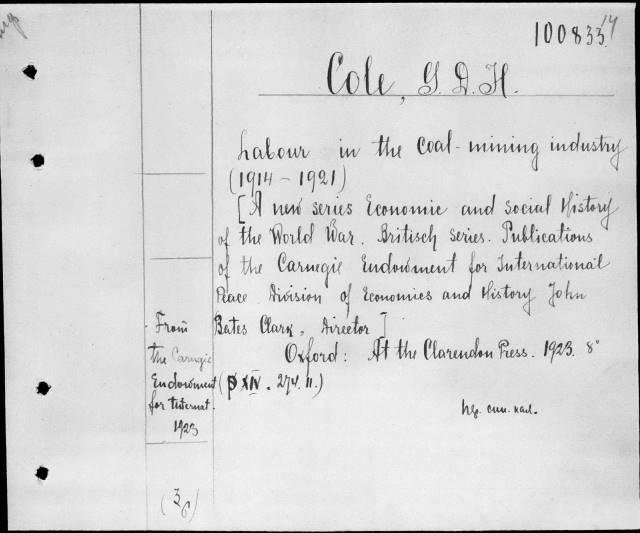 100833
Cole, G. D. H.
Labour in the Coal-mining industry
(1914-1921)
[A new series Economic and Social History
of the World War. Britisch series. Publications
of the Carnegie Endowment for International
Peace Division of Economics and History John
Bates Clark, Director]
Oxford: At the Clarendon Press. 1923. 8°
(p XIV. 274. II.)
From
the Carnegie
Endowment
for Internat.
1923